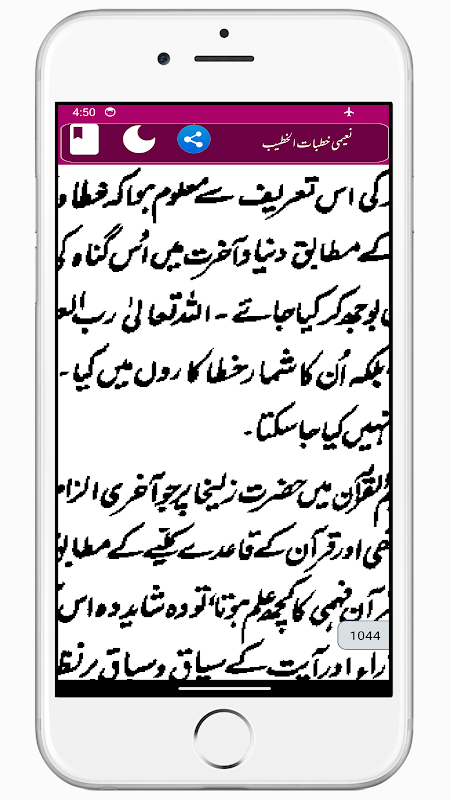 4:50
نعیمی خطبات الخطیب
کی اس تعریف سے معلوم ہوا کہ خطا و
کے مطابق دنیا و آخرت میں اُس گناہ کی
بوجھ کر کیا جائے ۔ اللہ تعالیٰ رب
بلکہ اُن کا شمار خطا کاروں میں کیا ۔
نہیں کیا جا سکتا ۔
القرآن میں حضرت زلیخا پر جو آخری الزام
اور قرآن کے قاعدے کلیے کے مطابق
قرآن فہمی کا کچھ علم ہوتا، تو وہ شاید وہ اس
1044
اور آیت کے سیاق و سباق پر نظر